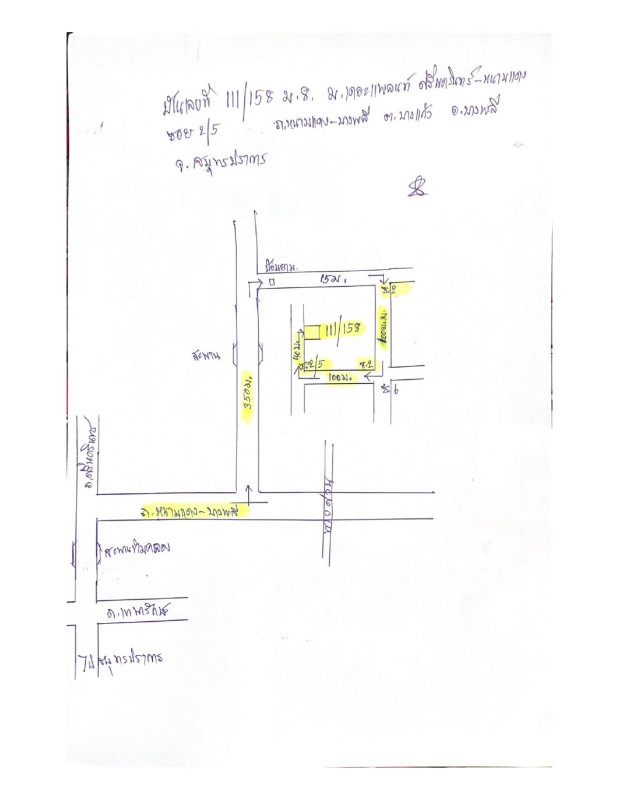 บ้านเลขที่ 111/158 ม.8. ม.เดอะแพลนท์ ศรีนครินทร์-หนามแดง
ซอย 2/5 ถ.หนามแดง-บางพลี ต.บางแก้ว อ.บางพลี
จ.สมุทรปราการ
ป้อมยาม.
15ม.
ซ.2
111/158
100ม.
40ม.
สะพาน
350ม.
ซ.2/5
ซ.2
100ม.
ซ 6
ถ.ศรีนครินทร์
ถ.หนามแดง-บางพลี
สะพานข้ามคลอง
ถ.เทพารักษ์
ไปสมุทรปราการ